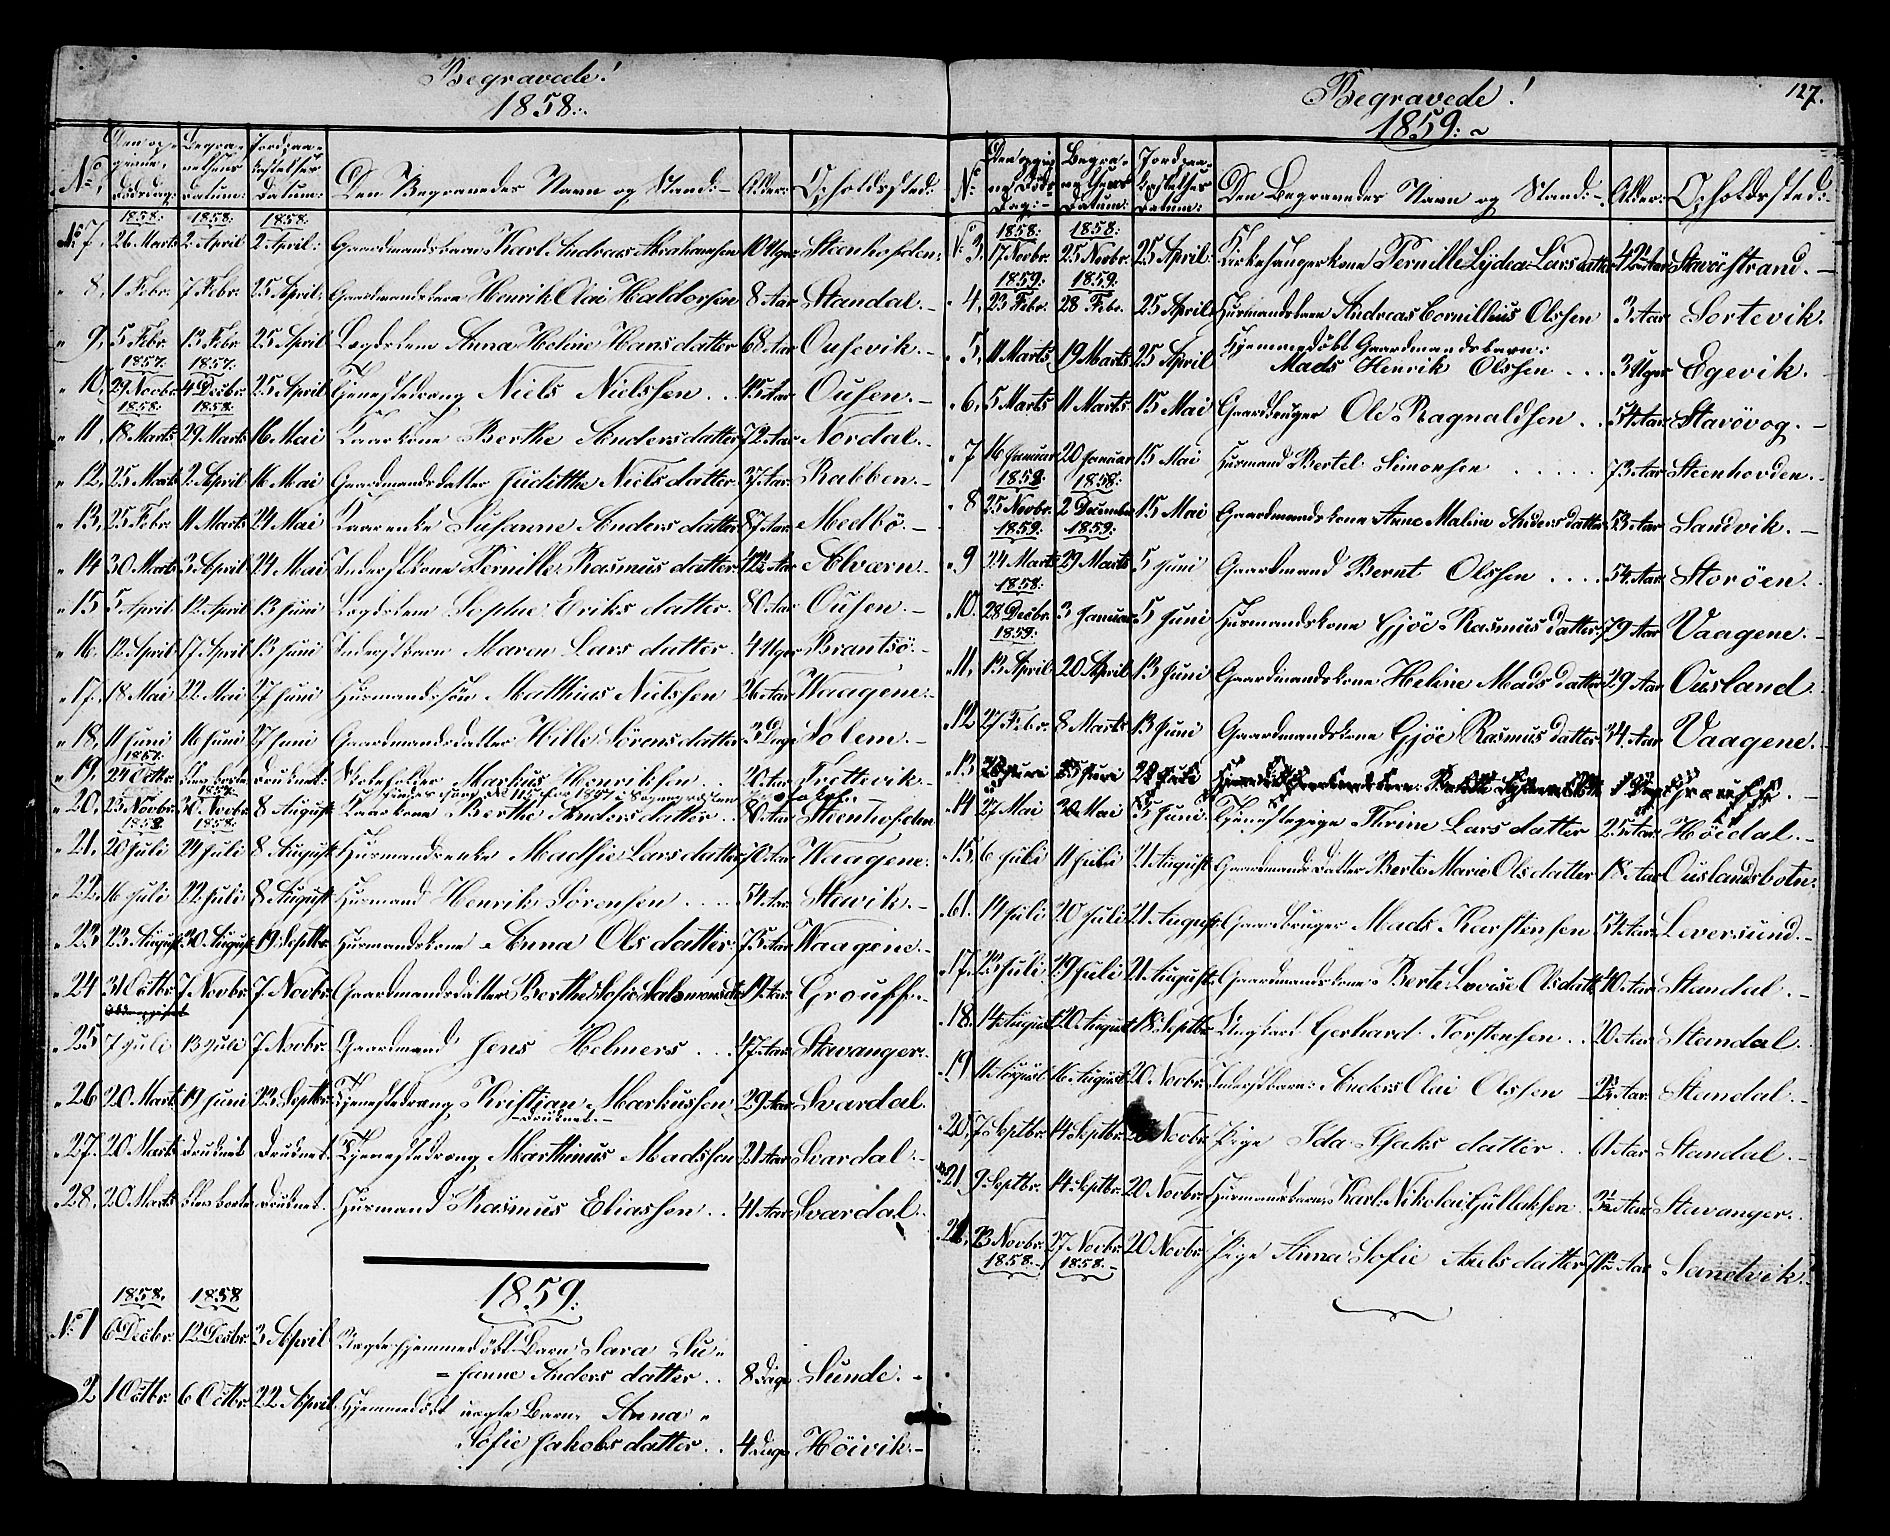 Begravede!
1858:
No:
Den opgivne Dødsdag:
Begravelsens Datum:
Jordpaakastelses Datum:
Den Begravedes Navn og Stand:-
Alder:
Opholdssted:
1858: 1858: 1858:
No 7, 26 Marts 2 April 2 April: Gaardmandsbarn Karl Andreas Abrahamsen 10 Uger Steenhofden:
" 8, 1 Febr. 7 Febr. 25 April: Gaardmandsbarn Henrik Olai Haldorsen 8 Aar Standal.-
" 9, 5 Febr. 13 Febr 25 April Lægdslem Anna Heline Hansdatter 68 Aar Ousevik.-
1857. 1857.
" 10, 29 Novbr. 4 Decbr. 25 April Tjenestedreng Niels Nielssen .. 45 Aar Ousen.-
1858. 1858.
" 11, 18 Marts 29 Marts 16 Mai Kaarkone Berthe Andersdatter 72 Aar Nordal.-
" 12, 25 Marts 2 April 16 Mai Gaardmandsdatter Judithe Nielsdatter 37 Aar Rabben.-
" 13, 25 Febr 11 Marts 24 Mai Kaarenke Susanne Andersdatter 87 Aar Medbö.-
" 14 30 Marts 3 April 24 Mai Inderstkone Pernille Rasmusdatter 42½ Aar Alværn.-
" 15 5 April 12 April 13 Juni Legdslem Sophie Eriksdatter. 80 Aar Ousen.-
" 16. 12 April 17 April 13 Juni Inderstbarn Maren Larsdatter. 4 Uger Brantsö.-
" 17. 18 Mai 22 Mai 27 Juni Husmandssön Matthias Nielssen 26 Aar Waagene.-
" 18, 11 Juni 16 Juni 27 Juni Gaardmandsdatter Hille Sörensdatter 3 Dage Solem.-
1857.
" 19, 24 Octbr. Druknet: Markus Henriksen 20 Aar Trettevik.-
1857.
" 20, 23 Novbr. 30 Novbr 8 August Kaarkone Berthe Andersdatter .. 80 Aar Steenhofden
1858 1858:
" 21. 20 Juli 24 Juli 8 August Husmandsenke Madsie Larsdatter 70 Aar Waagene.
" 22. 16 Juli 22 Juli 8 August Husmand Henrik Sörensen .... 54 Aar. Stavik.-
" 23 23 August 30 August 19 Septbr. Husmandskone Anna Olsdatter. 75 Aar Waagene.-
" 24 31 Octbr. 7 Novbr. 7 Novbr. Gaardmandsdatter Berthe Sofie Salomonsdtr 19 Aar Grouff.-
" 25 7 Juli 13 Juli 7 Novbr. Gaardmand Jens Helmers ... 47 Aar Stavanger.
" 26 20 Marts 19 Juni 23 Septbr. Tjenestedreng Kristian Markussen 29 Aar Svardal.
Druknet.-
" 27. 20 Marts Druknet Druknet. Tjenestedreng Marthinus Madssen 21 Aar Svardal.-
" 28. 20 Marts Blev borte Druknet. Husmand Rasmus Eliassen .. 41 Aar Svardal.
1859:
1858. 1858
No: 1 6 Decbr. 12 Decbr. 3 April Uægte hjemmedöbt Barn Sara Su=
= sanne Andersdatter .. 8 Dage Sunde. -
2 1 Octbr. 6 Octbr. 22 April. Hjemmedöbt uægte Barn, Anna
Sofie Jakobsdatter .. 4 Dage Höivik.-
Begravede!
127.
1859:~
No:
Den opgivne Dødsdag:-
Begravelsens Datum:
Jordpaakastelses Datum:
Den Begravedes Navn og Stand:-
Alder:
Opholdssted:
1858: 1858:
No 3, 17 Novbr. 25 Novbr. 25 April: Kirkesangerkone Pernille Lydia Larsdatter Stavöstrand.-
1859: 1859:
" 4, 23 Febr. 28 Febr. 25 April: Husmandsbarn Andreas Cornillius Olssen 3 Aar Sortevik.
" 5, 11 Marts 19 Marts 25 April Hjemmedöbt Gaardmandsbarn:
Mads Henrik Olssen ... 3 Uger Egevik.-
" 6, 5 Marts 11 Marts 15 Mai Gaardbruger Ole Ragnaldsen .. 54 Aar. Stavövog.-
" 7 16 Januar 20 Januar 15 Mai Husmand Bertel Simonsen ..... 73 Aar Steenhovden.-
1858: 1858:
" 8 25 Novbr. 2 December 15 Mai Gaardmandskone Anne Malene Andersdatter 53 Aar Sandvik.-
1859: 1859:
" 9 24 Marts 29 Marts 5 Juni Gaardmand Bernt Olssen .... 54 Aar Storöen.
1858:
" 10. 28 Decbr. 3 Januar 5 Juni Husmandskone Gjöe Rasmusdatter 79 Aar Vaagene.-
1859:
" 11, 13 April 20 April 13 Juni Gaardmandskone Heline Madsdatter 29 Aar Ousland.
" 12 27 Febr. 8 Marts 13 Juni Gaardmandskone Gjöe Rasmusdatter 34 Aar Vaagene.-
" 13
" 14 27 Mai 30 Mai 5 Juni Tjenestepige Thrine Larsdatter 25 Aar Höidal.-
" 15, 6 Juli 11 Juli 21 August Gaardmandsdatter Berte Marie Olsdatter 18 Aar Ouslandsbotn:
" 61. 14 Juli 20 Juli 21 August Gaardbruger Mads Karstensen 54 Aar Leversund.-
" 17. 23 Juli 29 Juli 21 August Gaardmandskone Berte Lovise Olsdatt 40 Aar Standal.-
" 18. 14 August 20 August 18 Septbr. Ungkarl Gerhard Torstensen .. 20 Aar Standal.
" 19 11 August 16 August 20 Novbr. Inderstbarn: Anders Olai Olssen Aar. Standal.-
" 20, 7 Septbr. 14 Septbr. 20 Novbr. Pige Ida Isaksdatter .. 61 Aar Standal.-
" 21, 9 Septbr. 14 Septbr. 20 Novbr. Husmandsbarn Karl Nikolai Gullaksen Aar Stavanger.
" 22, 23 Novbr. 27 Novbr. 20 Novbr. Pige Anna Sofie Axelsdatter Aar Sandvik.
1858.- 1858.-